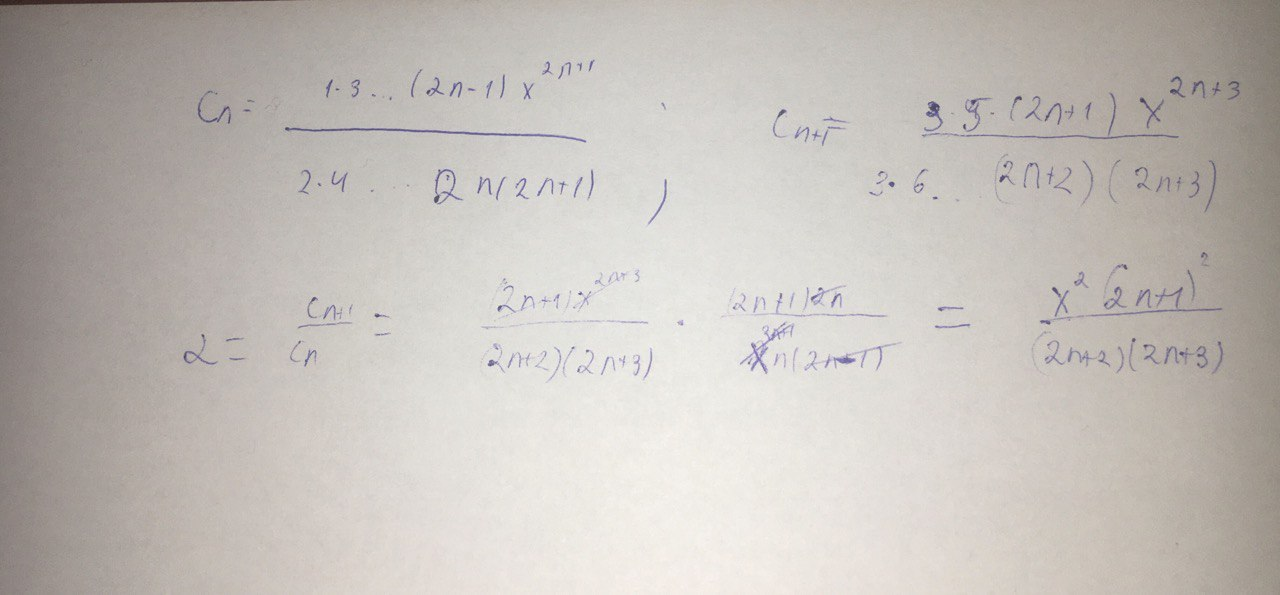 Cn = 1·3... (2n-1) x^{2n+1} / 2·4 ... 2n(2n+1) , C_{n+1} = 3·5·(2n+1) x^{2n+3} / 3·6... (2n+2)(2n+3)
α = C_{n+1} / C_n = (2n+1) x^{2n+3} / (2n+2)(2n+3) · (2n+1)2n / = x^2 (2n+1)^2 / (2n+2)(2n+3)